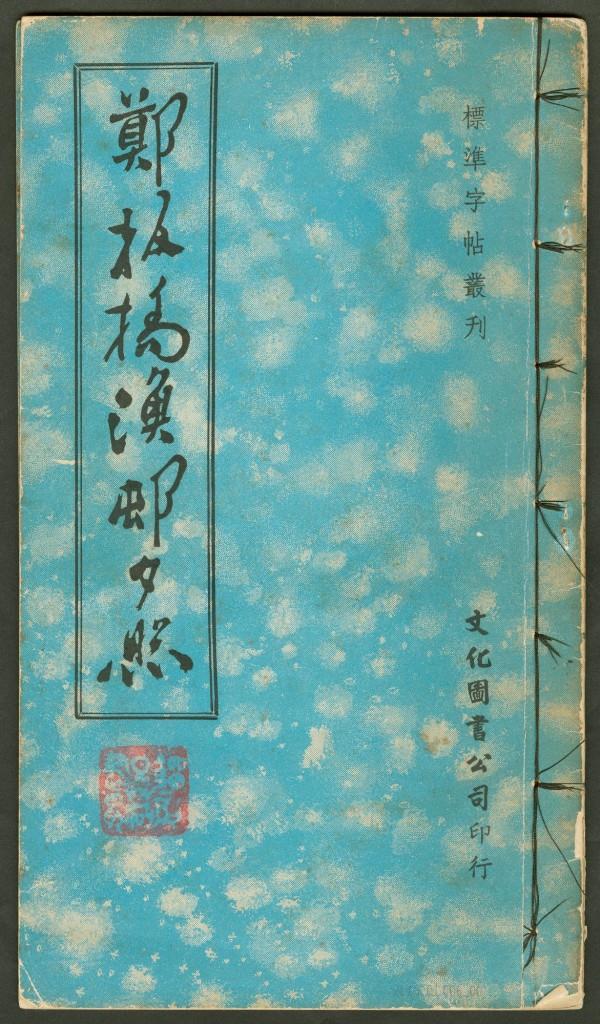 標準字帖叢刊
文化圖書公司印行
鄭板橋漁邨夕照